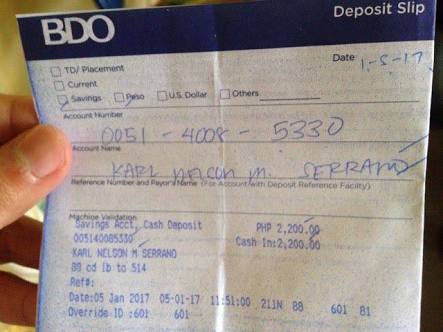 BDO
Deposit Slip
Date 1-5-17
TD/ Placement
Current
Savings Peso U.S. Dollar Others
Account Number
0051 - 4008 - 5330
Account Name
KARL NELSON M. SERRANO
Reference Number and Payor's Name (For Account with Deposit Reference Facility)
Machine Validation
Savings Acct, Cash Deposit PHP 2,200.00
005140085330 Cash In:2,200.00
KARL NELSON M SERRANO
88 cd lb to 514
Ref#:
Date:05 Jan 2017 05-01-17 11:51:00 211N 88 601 81
Override ID :601 601